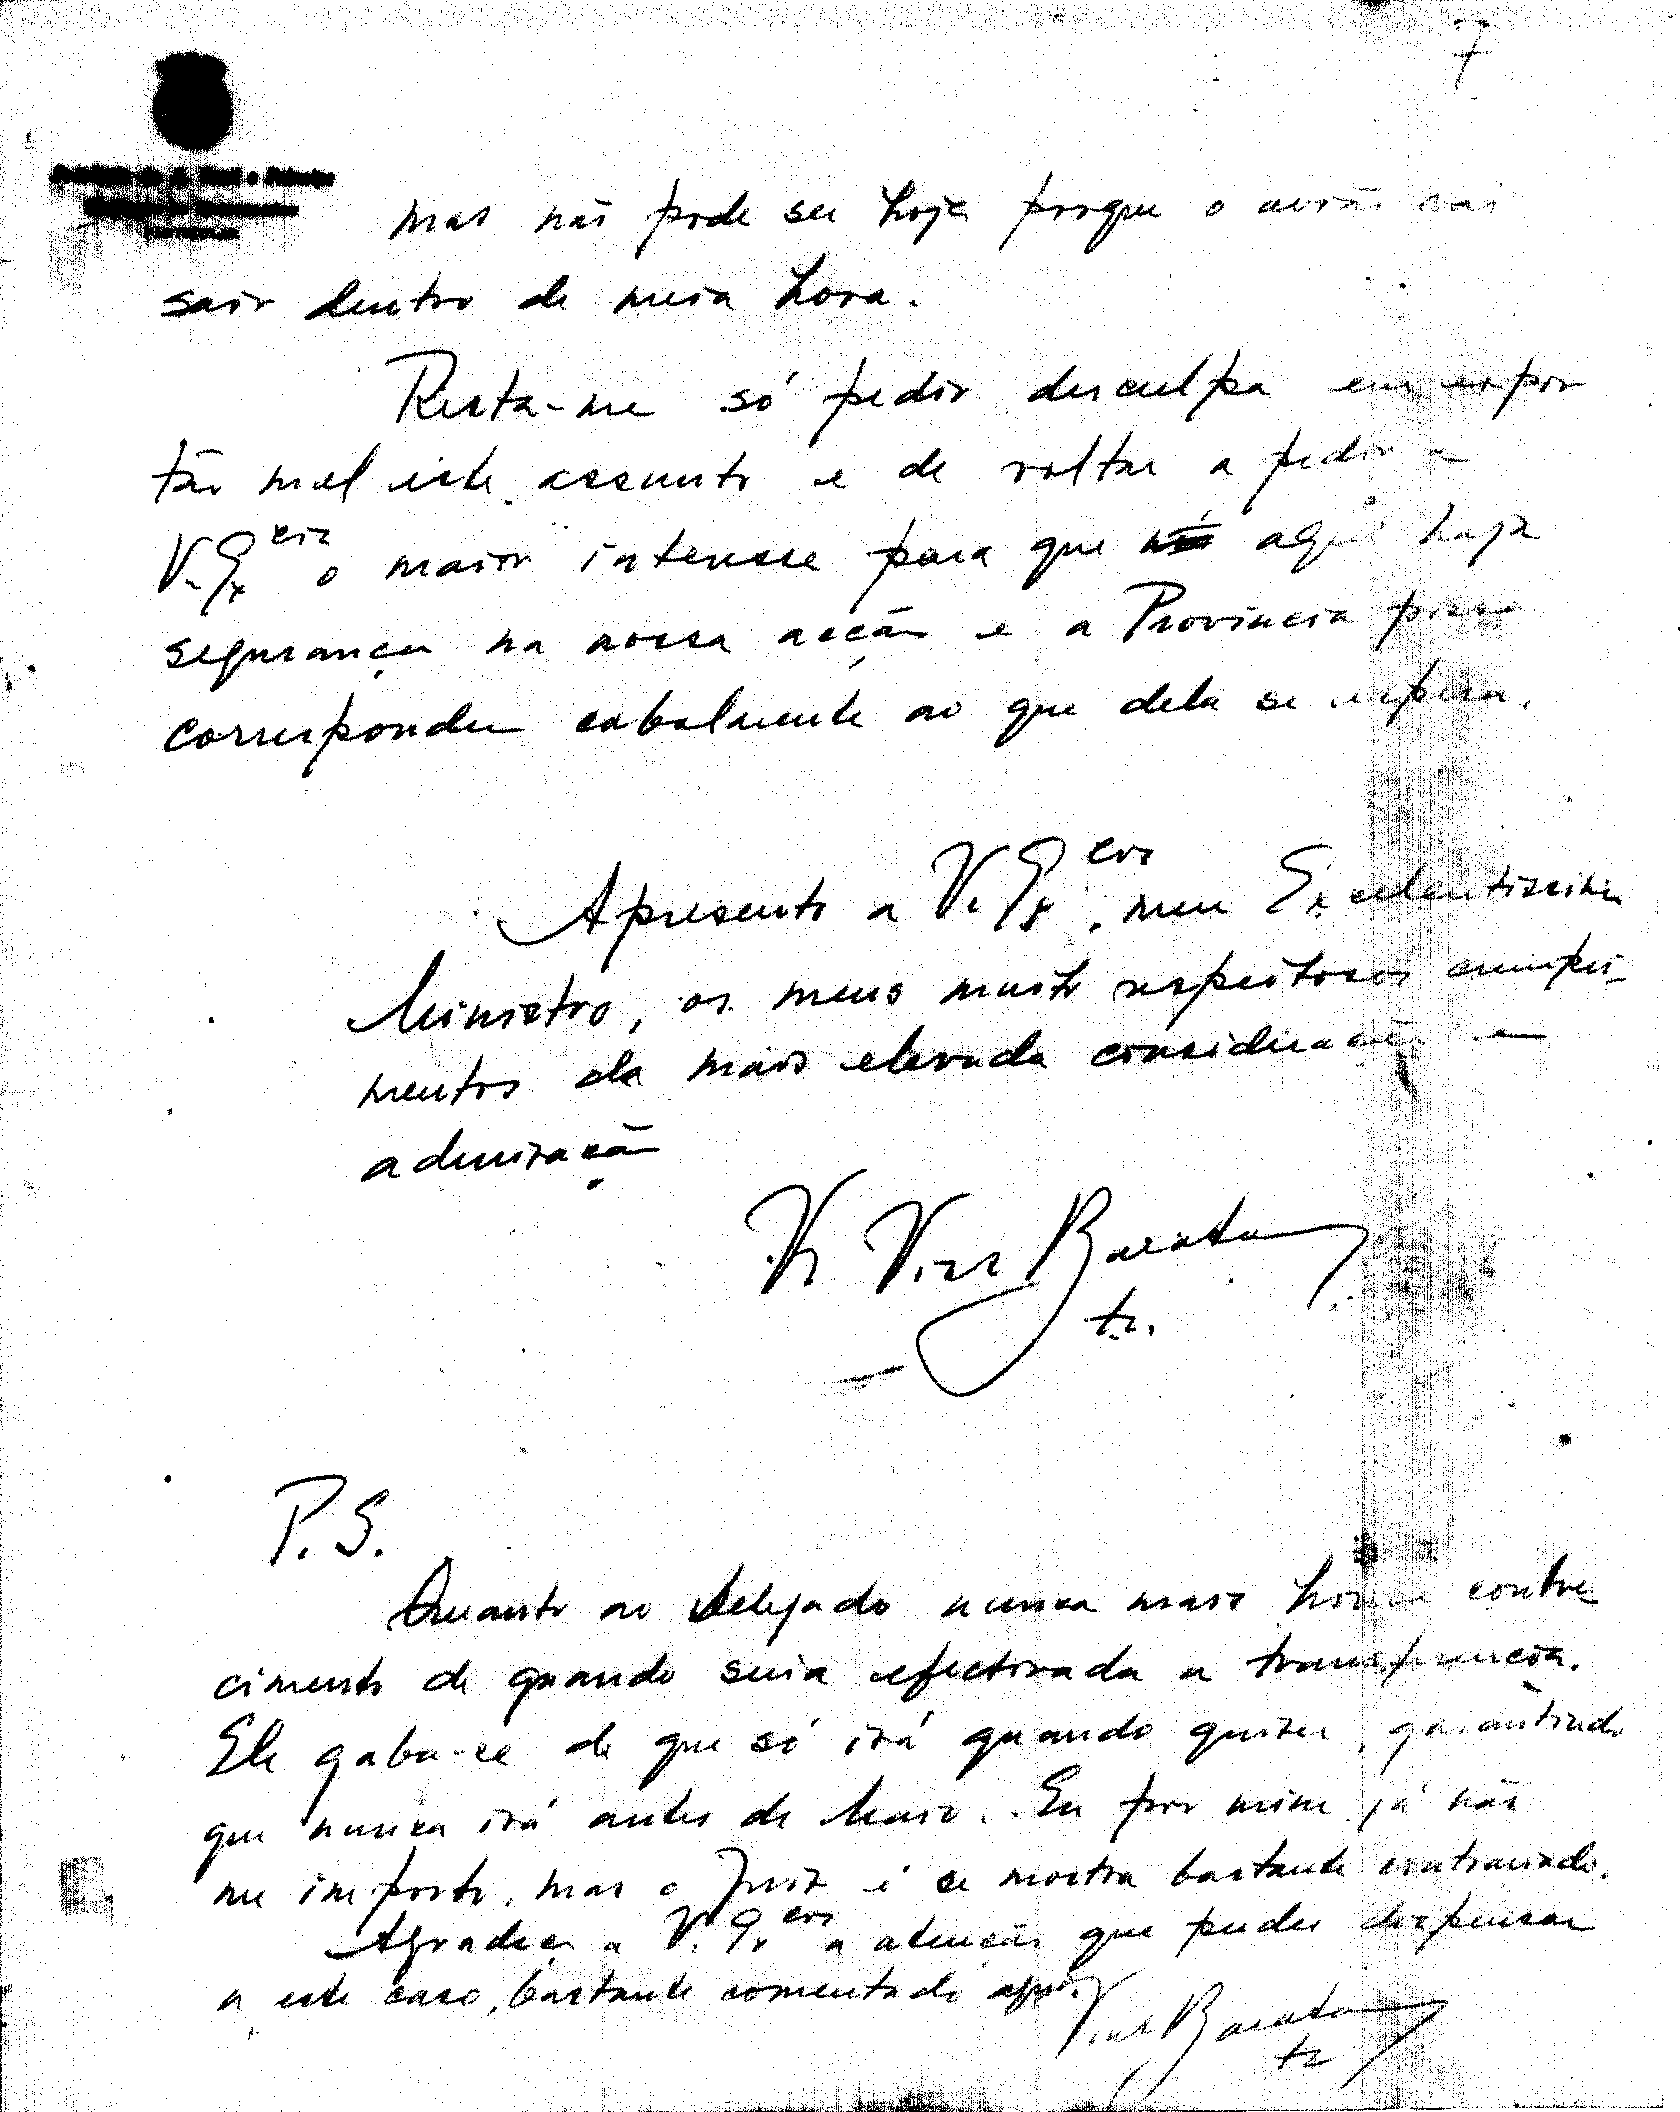 7
mas não pode ser hoje porque o avião vai
sair dentro de meia hora.
Resta-me só pedir desculpa em expor
tão mal este assunto e de voltar a pedir a
V. Ex.cia o maior interesse para que aqui haja
segurança na nossa acção e a Provincia possa
corresponder cabalmente ao que dela se espera.
Apresento a V. Ex.cia, meu Excelentissimo
Ministro, os meus muito respeitosos cumpri-
mentos da mais elevada consideração e
admiração
Vaz Barata
P.S.
Quanto ao Delegado nunca mais houve conhe
cimento de quando seria efectivada a transferencia.
Ele gaba-se de que só irá quando quiser, garantindo
que nunca irá antes de Maio. Eu por mim já não
me importo, mas o Juiz é se mostra bastante contrariado.
Agradeço a V. Ex.cia a atenção que puder dispensar
a este caso, bastante comentado aqui.
Barata